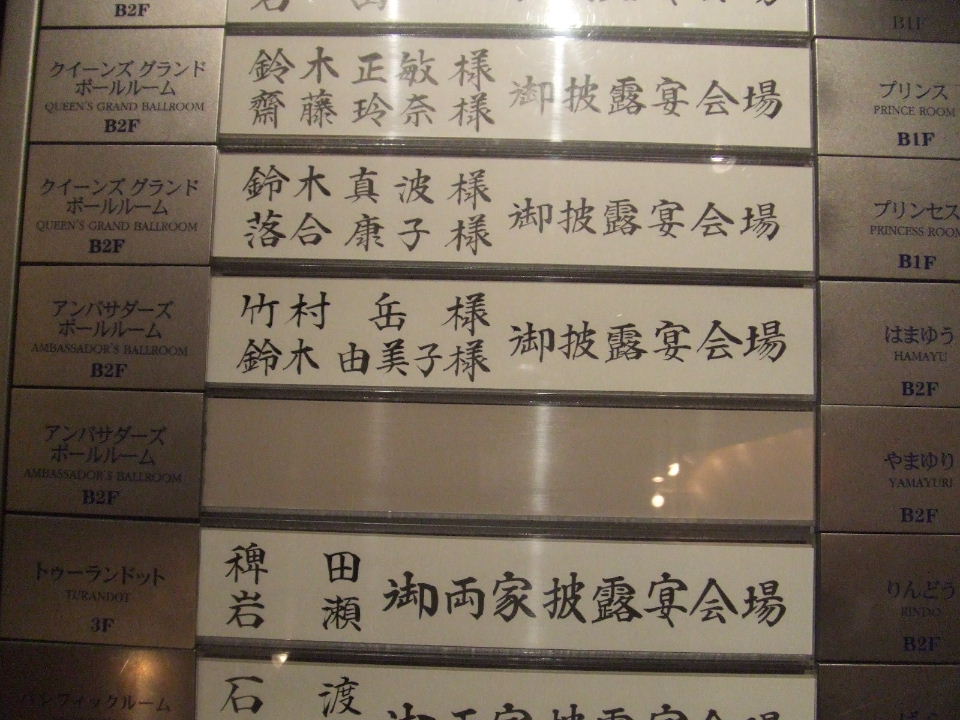 B2F
B1F
クイーンズ グランド
ボールルーム
QUEEN'S GRAND BALLROOM
B2F
鈴木 正敏 様
齋藤 玲奈 様
御披露宴会場
プリンス
PRINCE ROOM
B1F
クイーンズ グランド
ボールルーム
QUEEN'S GRAND BALLROOM
B2F
鈴木 真波 様
落合 康子 様
御披露宴会場
プリンセス
PRINCESS ROOM
B1F
アンバサダーズ
ボールルーム
AMBASSADOR'S BALLROOM
B2F
竹村 岳 様
鈴木 由美子様
御披露宴会場
はまゆう
HAMAYU
B2F
アンバサダーズ
ボールルーム
AMBASSADOR'S BALLROOM
B2F
やまゆり
YAMAYURI
B2F
トゥーランドット
TURANDOT
3F
稗田
岩瀬
御両家披露宴会場
りんどう
RINDO
B2F
パシフィックルーム
石渡